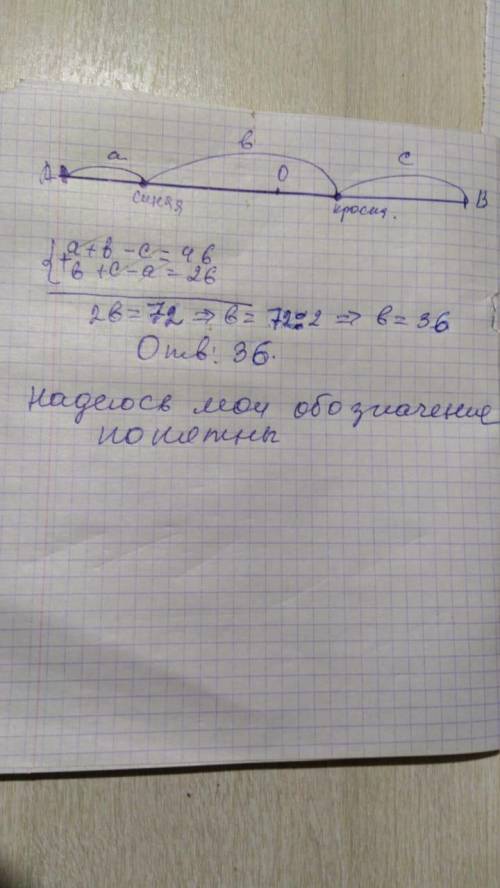 a в c
A синяя O красня. B
{+ a + в - c = 46
в + c - a = 26
2в = 72 ⇒ в = 72:2 ⇒ в = 36
Отв: 36.
надеюсь мои обозначение
понятны